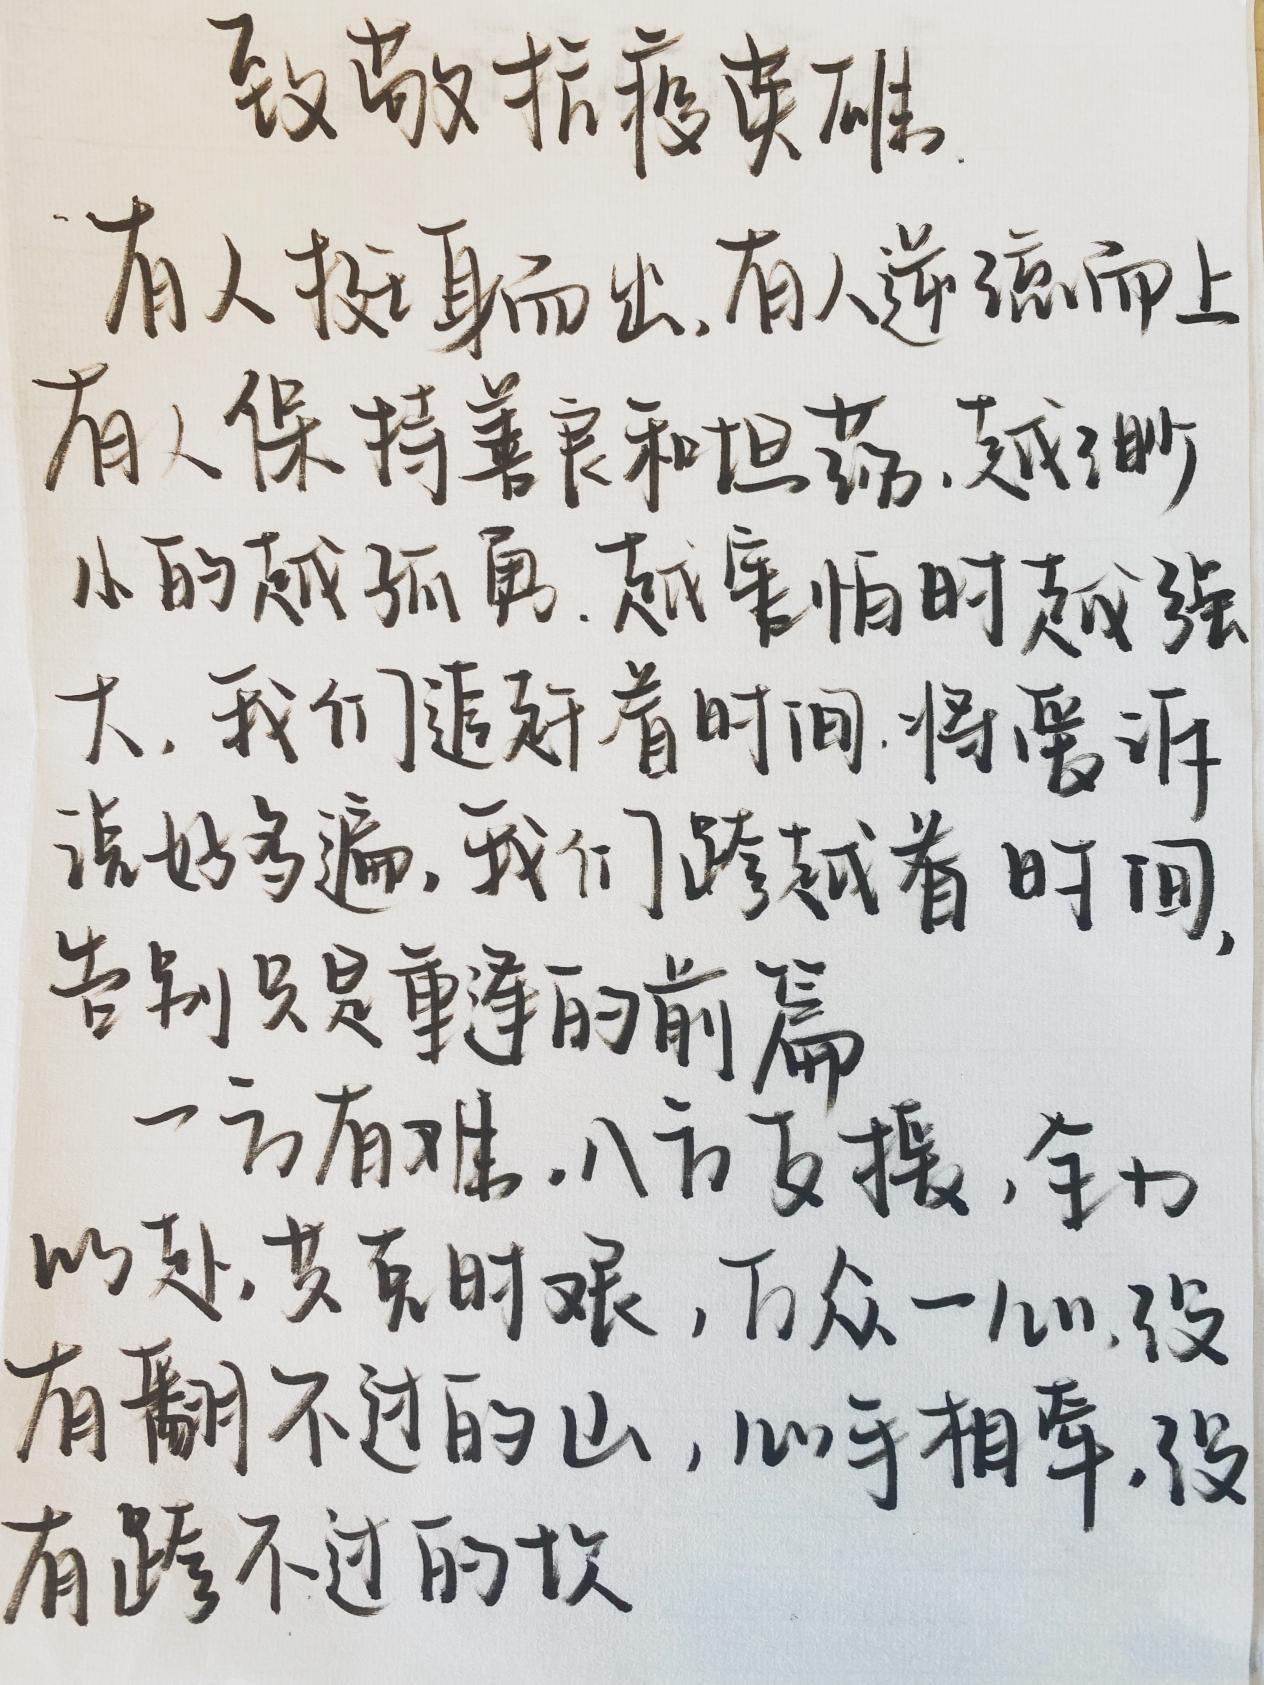 致敬抗疫英雄
有人挺身而出,有人逆流而上
有人保持善良和坦荡,越渺
小的越孤勇.越害怕时越强
大,我们追赶着时间.将爱诉
说好多遍,我们跨越着时间,
告别只是重逢的前篇
一方有难,八方支援,全力
以赴,共克时艰,万众一心,没
有翻不过的山,心手相牵,没
有跨不过的坎